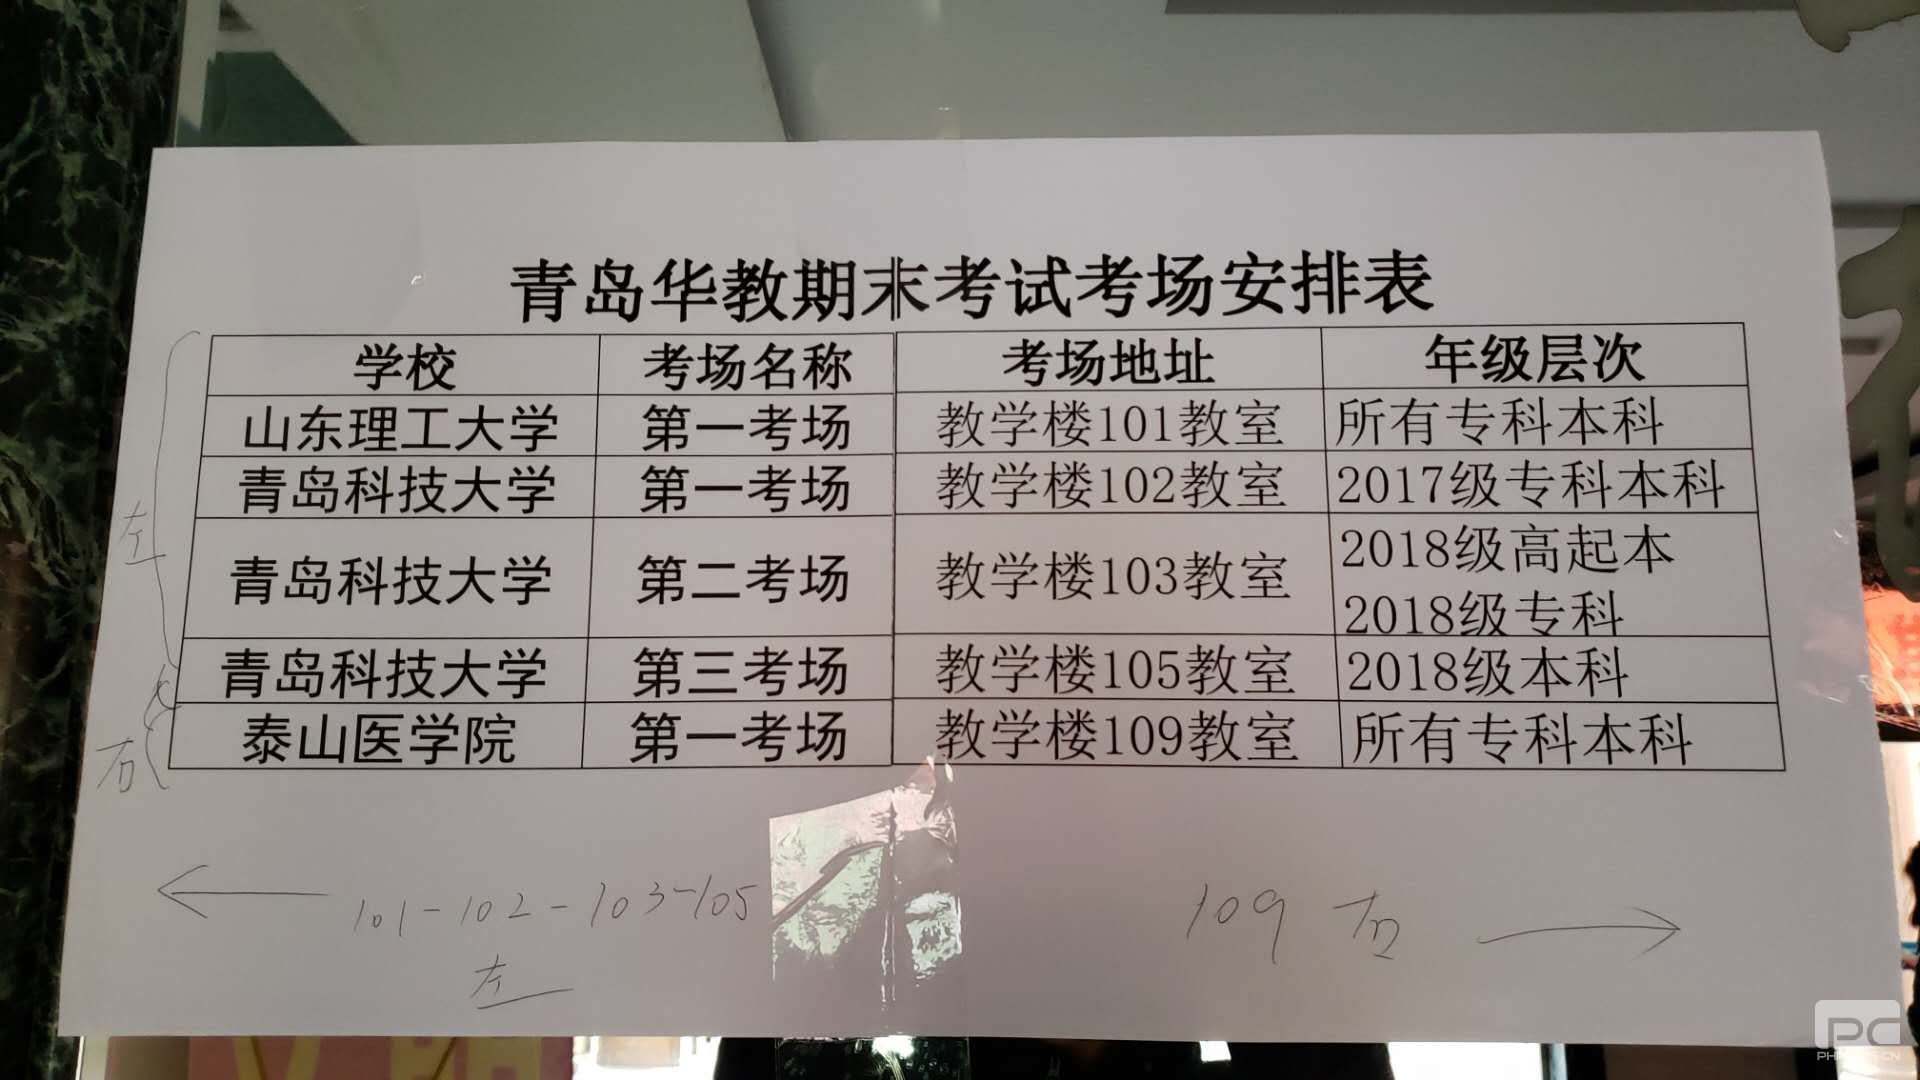 青岛华教期末考试考场安排表
学校 考场名称 考场地址 年级层次
山东理工大学 第一考场 教学楼101教室 所有专科本科
青岛科技大学 第一考场 教学楼102教室 2017级专科本科
青岛科技大学 第二考场 教学楼103教室 2018级高起本
2018级专科
青岛科技大学 第三考场 教学楼105教室 2018级本科
泰山医学院 第一考场 教学楼109教室 所有专科本科
左
右
101-102-103-105
左
109 右
PC